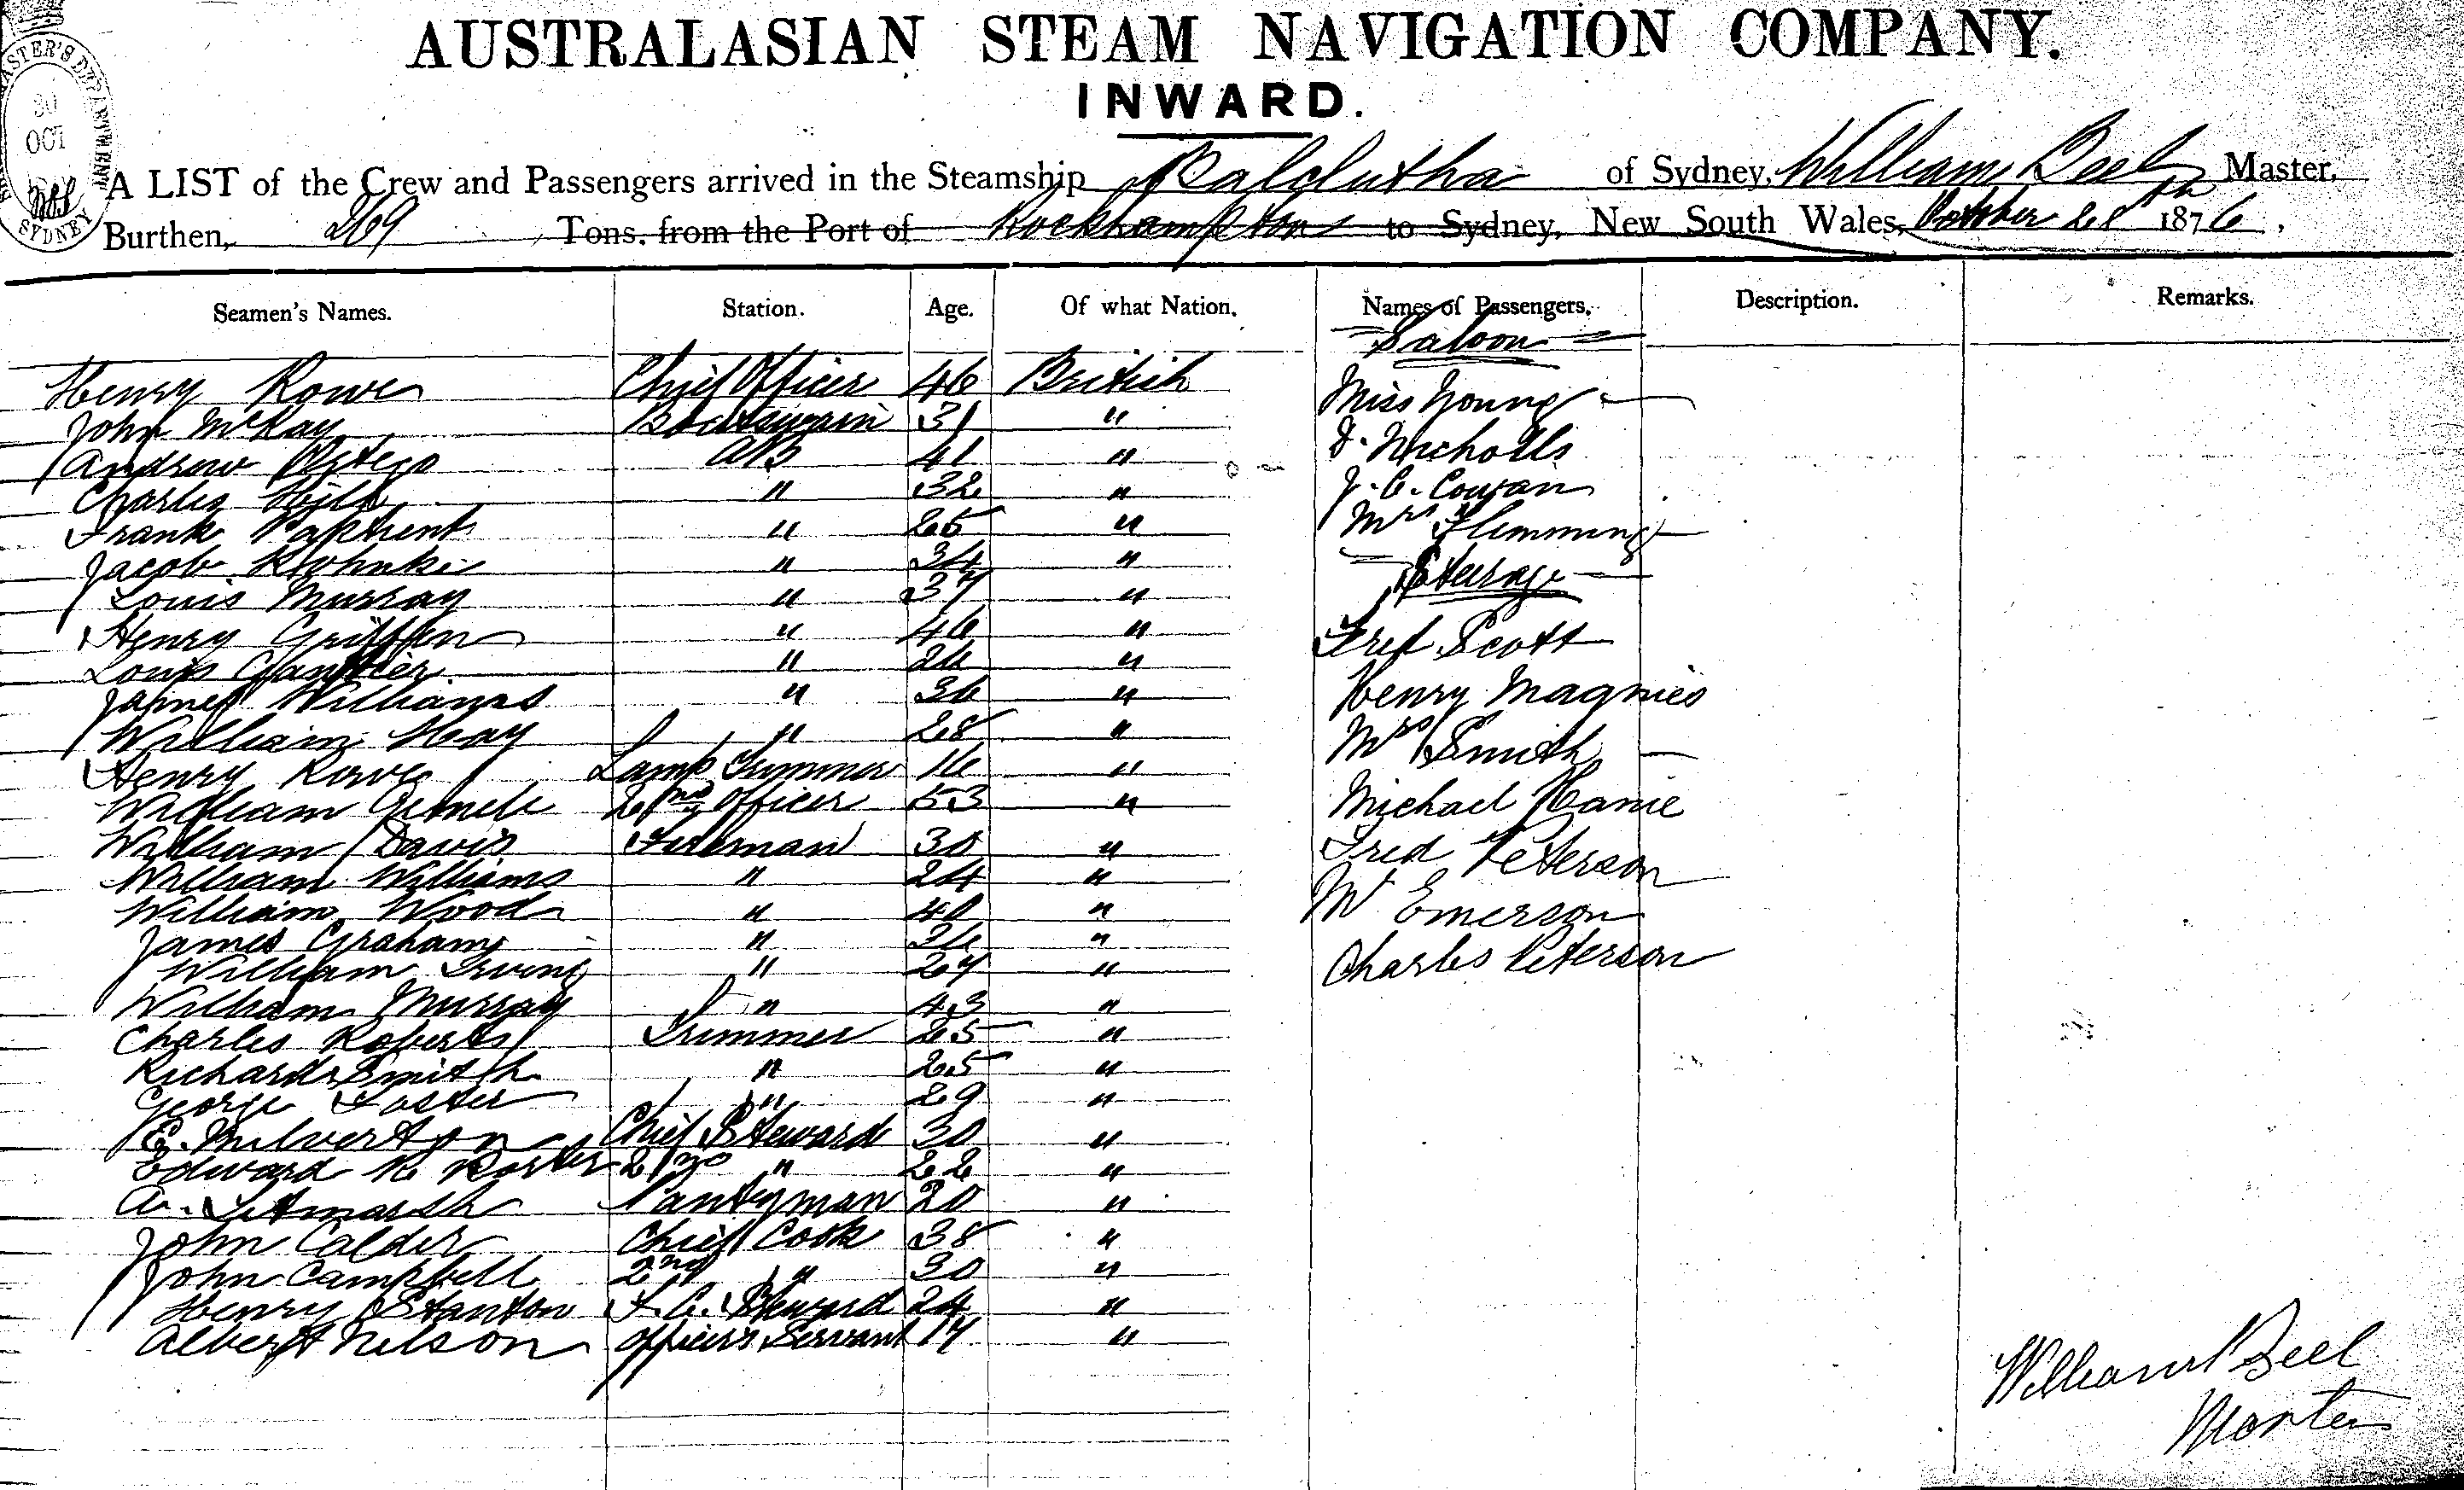 AUSTRALASIAN STEAM NAVIGATION COMPANY.
INWARD.
30
OCT
SYDNEY
A LIST of the Crew and Passengers arrived in the Steamship Balclutha of Sydney, William Beel Master,
Burthen, 269 Tons, from the Port of Rockhampton to Sydney, New South Wales, October 28th 1876.
Seamen's Names. Station. Age. Of what Nation. Names of Passengers. Description. Remarks.
Saloon
Henry Rowe Chief Officer 46 British Miss Young
John McKay Boatswain 31 "
Andrew AB 41 " J. Nicholls
Charles " 32 " J. C. Cowan
Frank " 25 " Mrs Flemming
Jacob " 34 " Steerage
Louis Murray " 37 "
Henry Griffen " 46 " Fred Scott
Louis " "
James Williams " 36 " Henry Magnies
William Hay " 28 " Mrs Smith
Henry Rowe Lamp Trimmer 16 "
William 2nd Officer 53 " Michael
William Davis Fireman 30 " Fred Peterson
William Williams " 24 "
William Wood " 40 " Mr Emerson
James Graham " "
William Irving " 27 " Charles Peterson
William Murray " 43 "
Charles Roberts Trimmer 25 "
Richard Smith " 25 "
George Foster " 29 "
E. Milverton Chief Steward 30 "
Edward R. 2nd " 22 "
A. Pantryman 20 "
John Calder Chief Cook 38 "
John Campbell 2nd " 30 "
Henry Stanton F. C. Steward 24 "
Albert Nelson Officers Servant 17 "
William Beel
Master